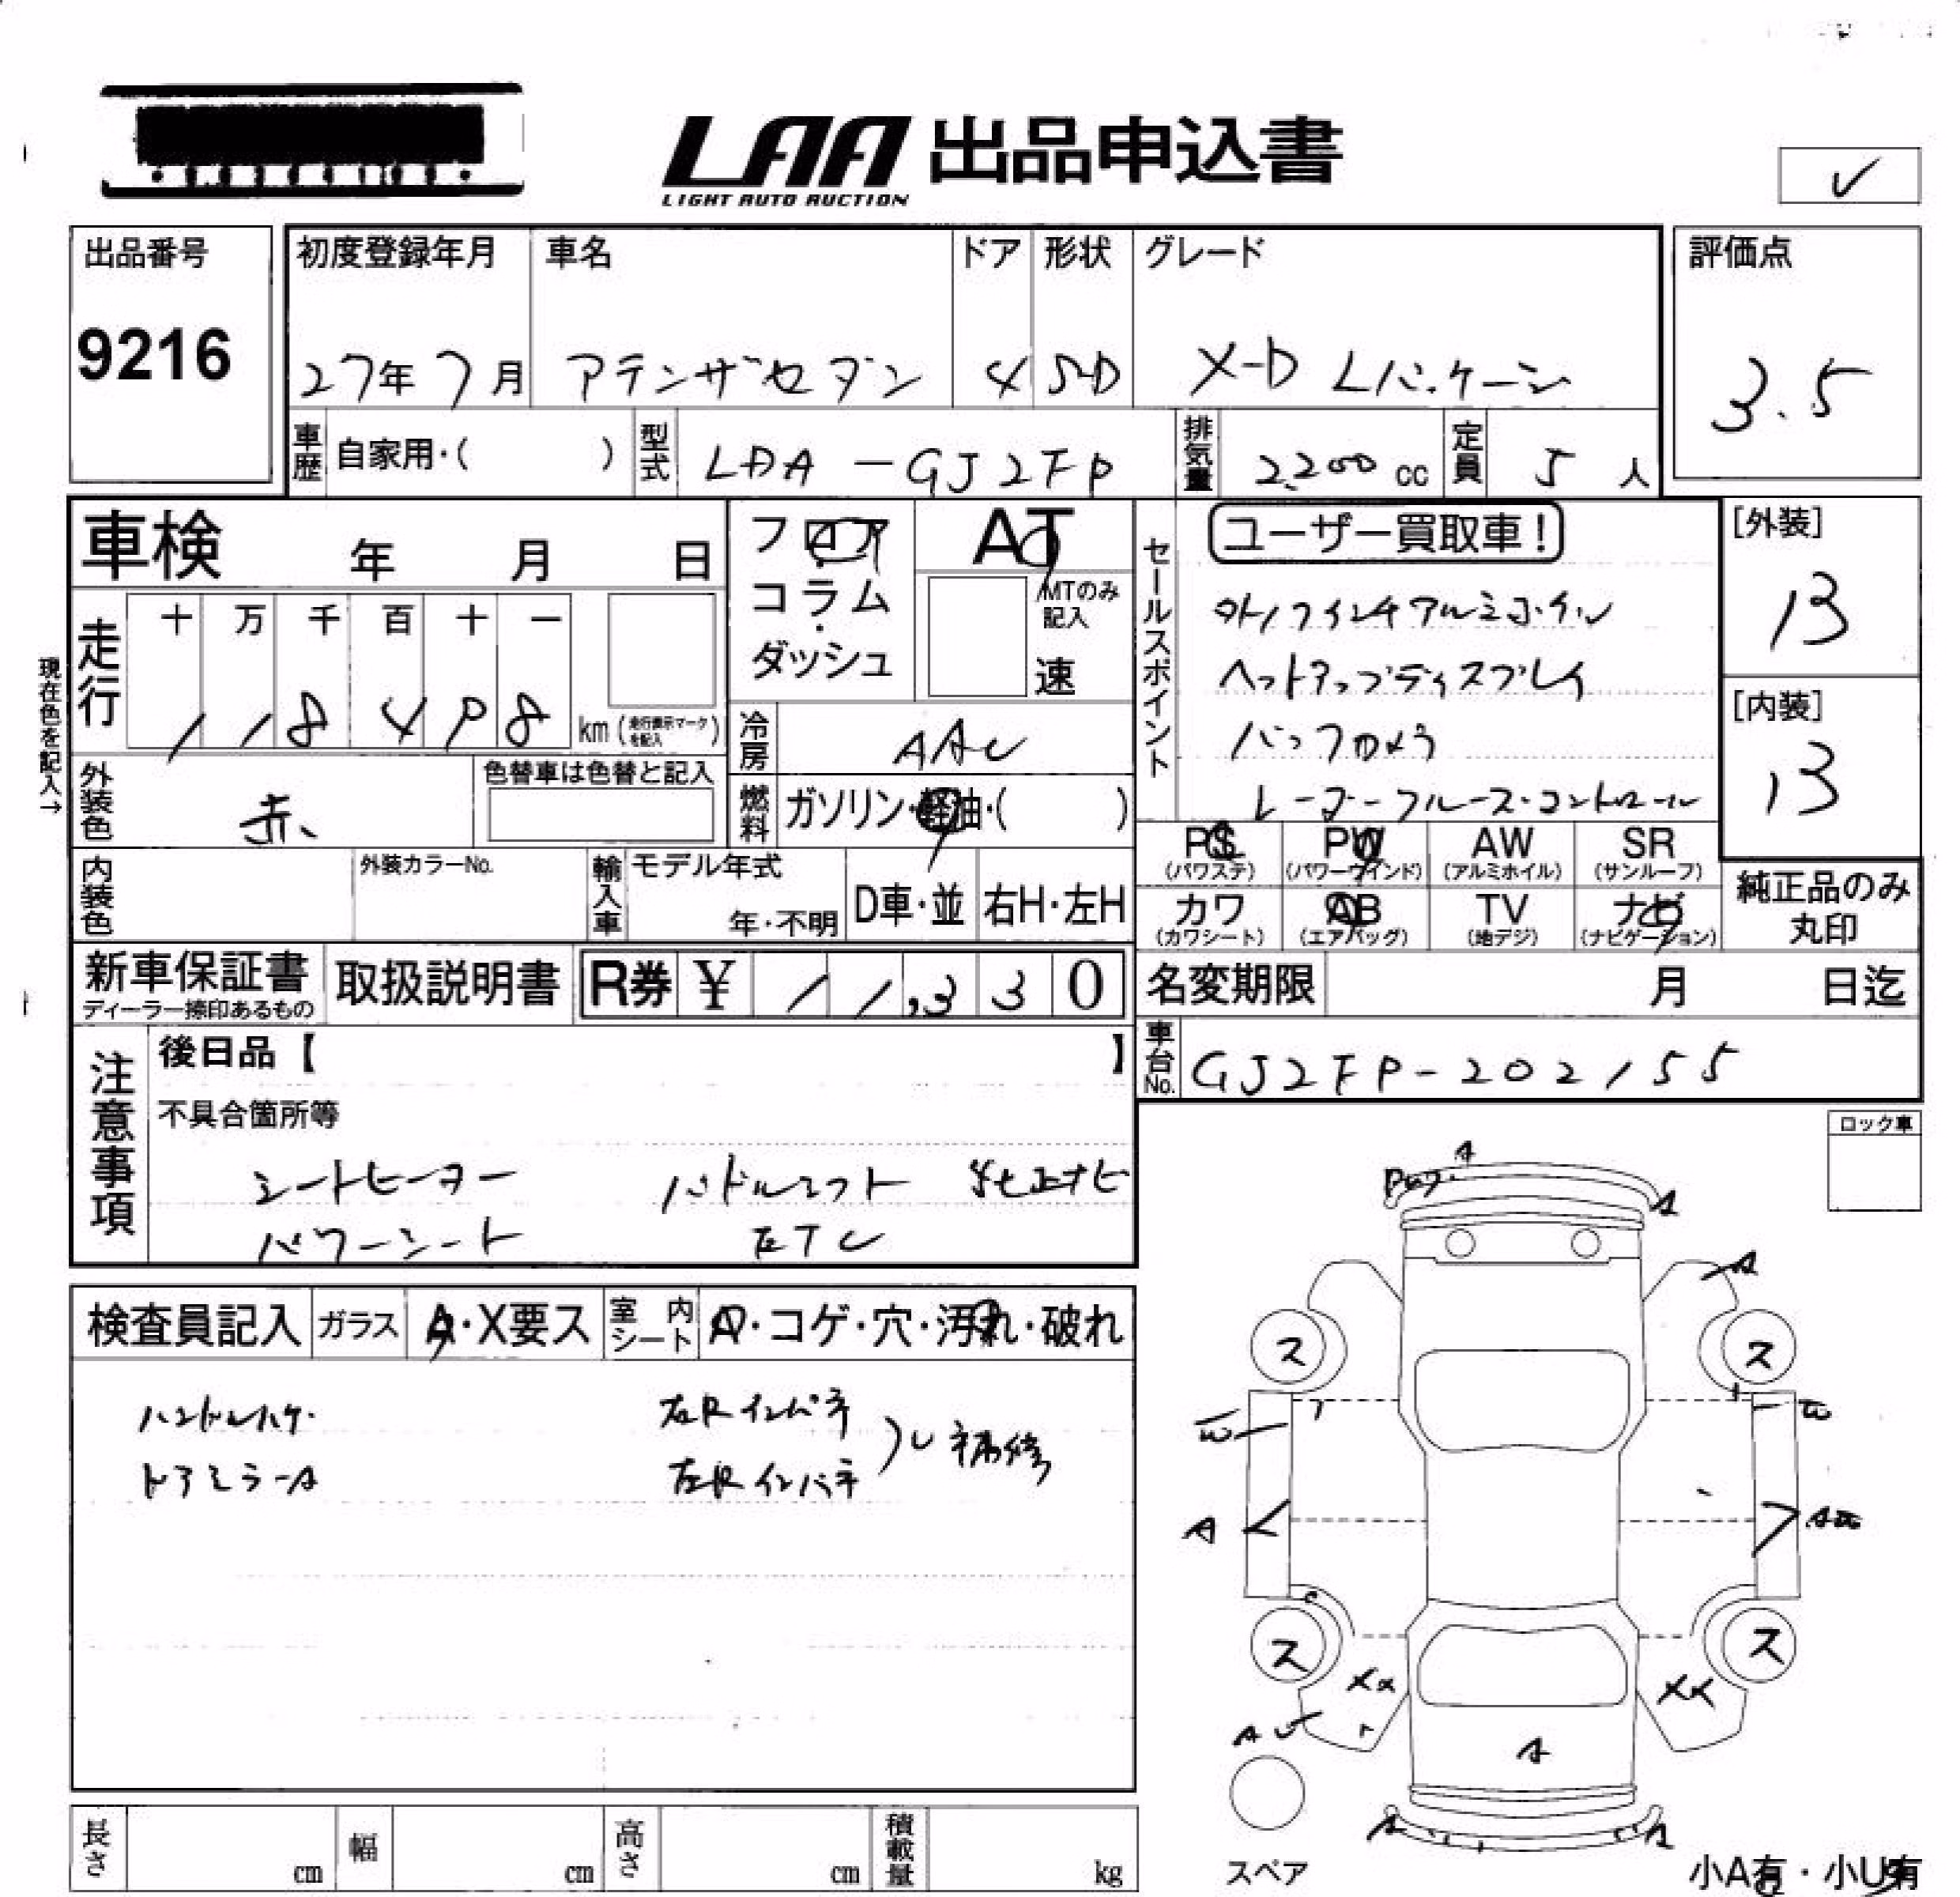 LAA 出品申込書
LIGHT AUTO AUCTION
✓
出品番号 初度登録年月 車名 ドア 形状 グレード 評価点
9216 27年7月 アテンザセダン 4 SD X-D Lパッケージ 3.5
車歴 自家用・( ) 型式 LDA-GJ2FP 排気量 2,200 cc 定員 5 人
車検 年 月 日 フロア AT
コラム MTのみ記入
ダッシュ 速
セールスポイント ユーザー買取車!
ヘッドアップディスプレイ
バックカメラ
レーダークルーズ・コントロール
[外装]
13
[内装]
13
現在色を記入→
走行 十 万 千 百 十 一
1 1 8 4 9 8 km (走行表示マークを記入)
冷房 AAC
外装色 赤 色替車は色替と記入 燃料 ガソリン・軽油・( )
PS PW AW SR
(パワステ) (パワーウインド) (アルミホイル) (サンルーフ)
カワ AB TV ナビ
(カワシート) (エアバッグ) (地デジ) (ナビゲーション)
純正品のみ
丸印
内装色 外装カラーNo. 輸入車 モデル年式 年・不明 D車・並 右H・左H
新車保証書 取扱説明書 R券 ¥ 11,330 名変期限 月 日迄
ディーラー捺印あるもの
車台No. GJ2FP-202155
注意事項 後日品【 】
不具合箇所等
シートヒーター パドルシフト 純正ナビ
パワーシート ETC
ロック車
検査員記入 ガラス A・X要ス 室内シート A・コゲ・穴・汚れ・破れ
ハンドルハゲ 右Rインパネ
ドアミラーA 左Rインパネ
補修
A
A
A
ス ス
W W
A
ス ス
XX XX
AU
A
A A
スペア
小A有・小U有
長さ cm 幅 cm 高さ cm 積載量 kg